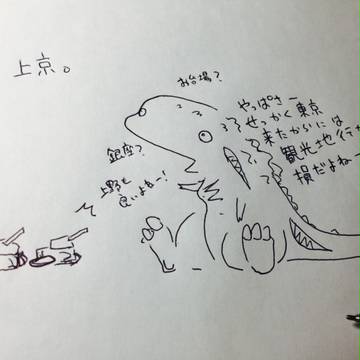 上京。
お台場？
やっぱさー
せっかく東京
来たからには
観光地行か
損だよねー
銀座？
上野も
良いよねー！